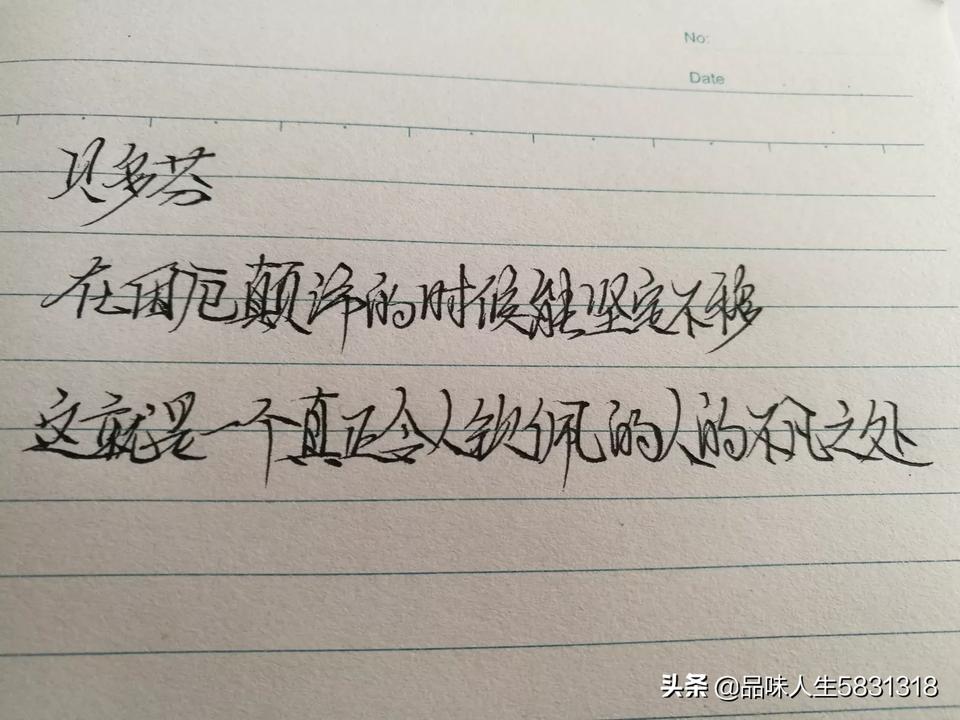 No:
Date
贝多芬
在困厄颠沛的时候能坚定不移
这就是一个真正令人钦佩的人的不凡之处
头条 @品味人生5831318